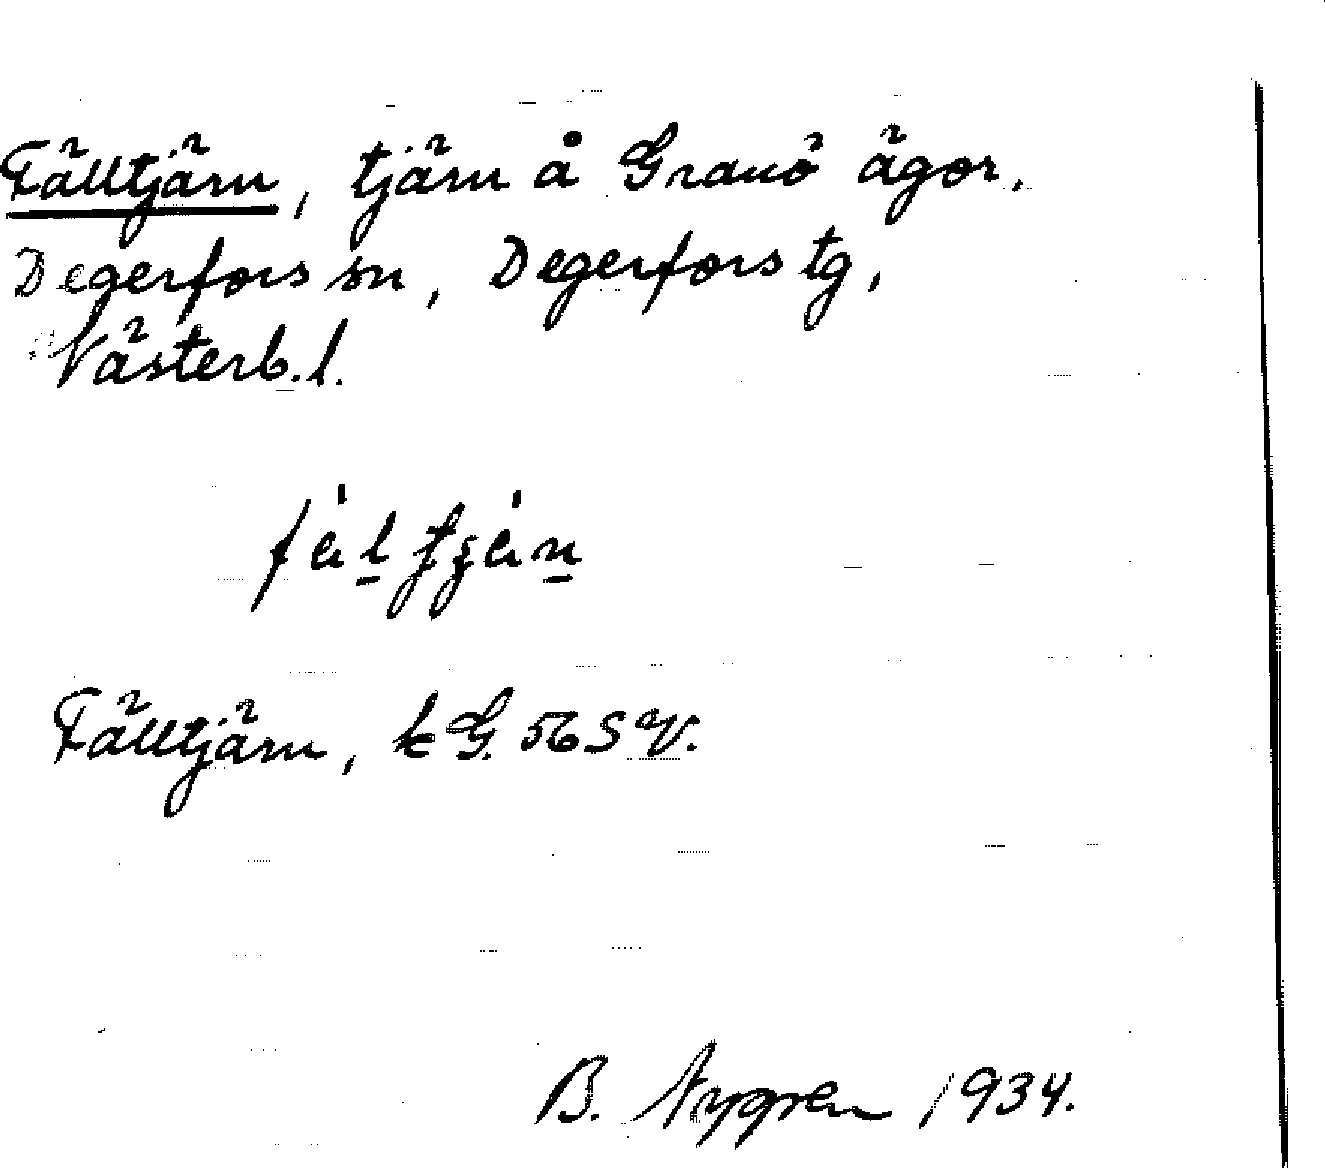 Fälltjärn, tjärn å Granö ägor.
Degerfors sn, Degerfors tg,
Västerb. l.
Fälltjärn, kG. 56 SV.
B. Nygren 1934.